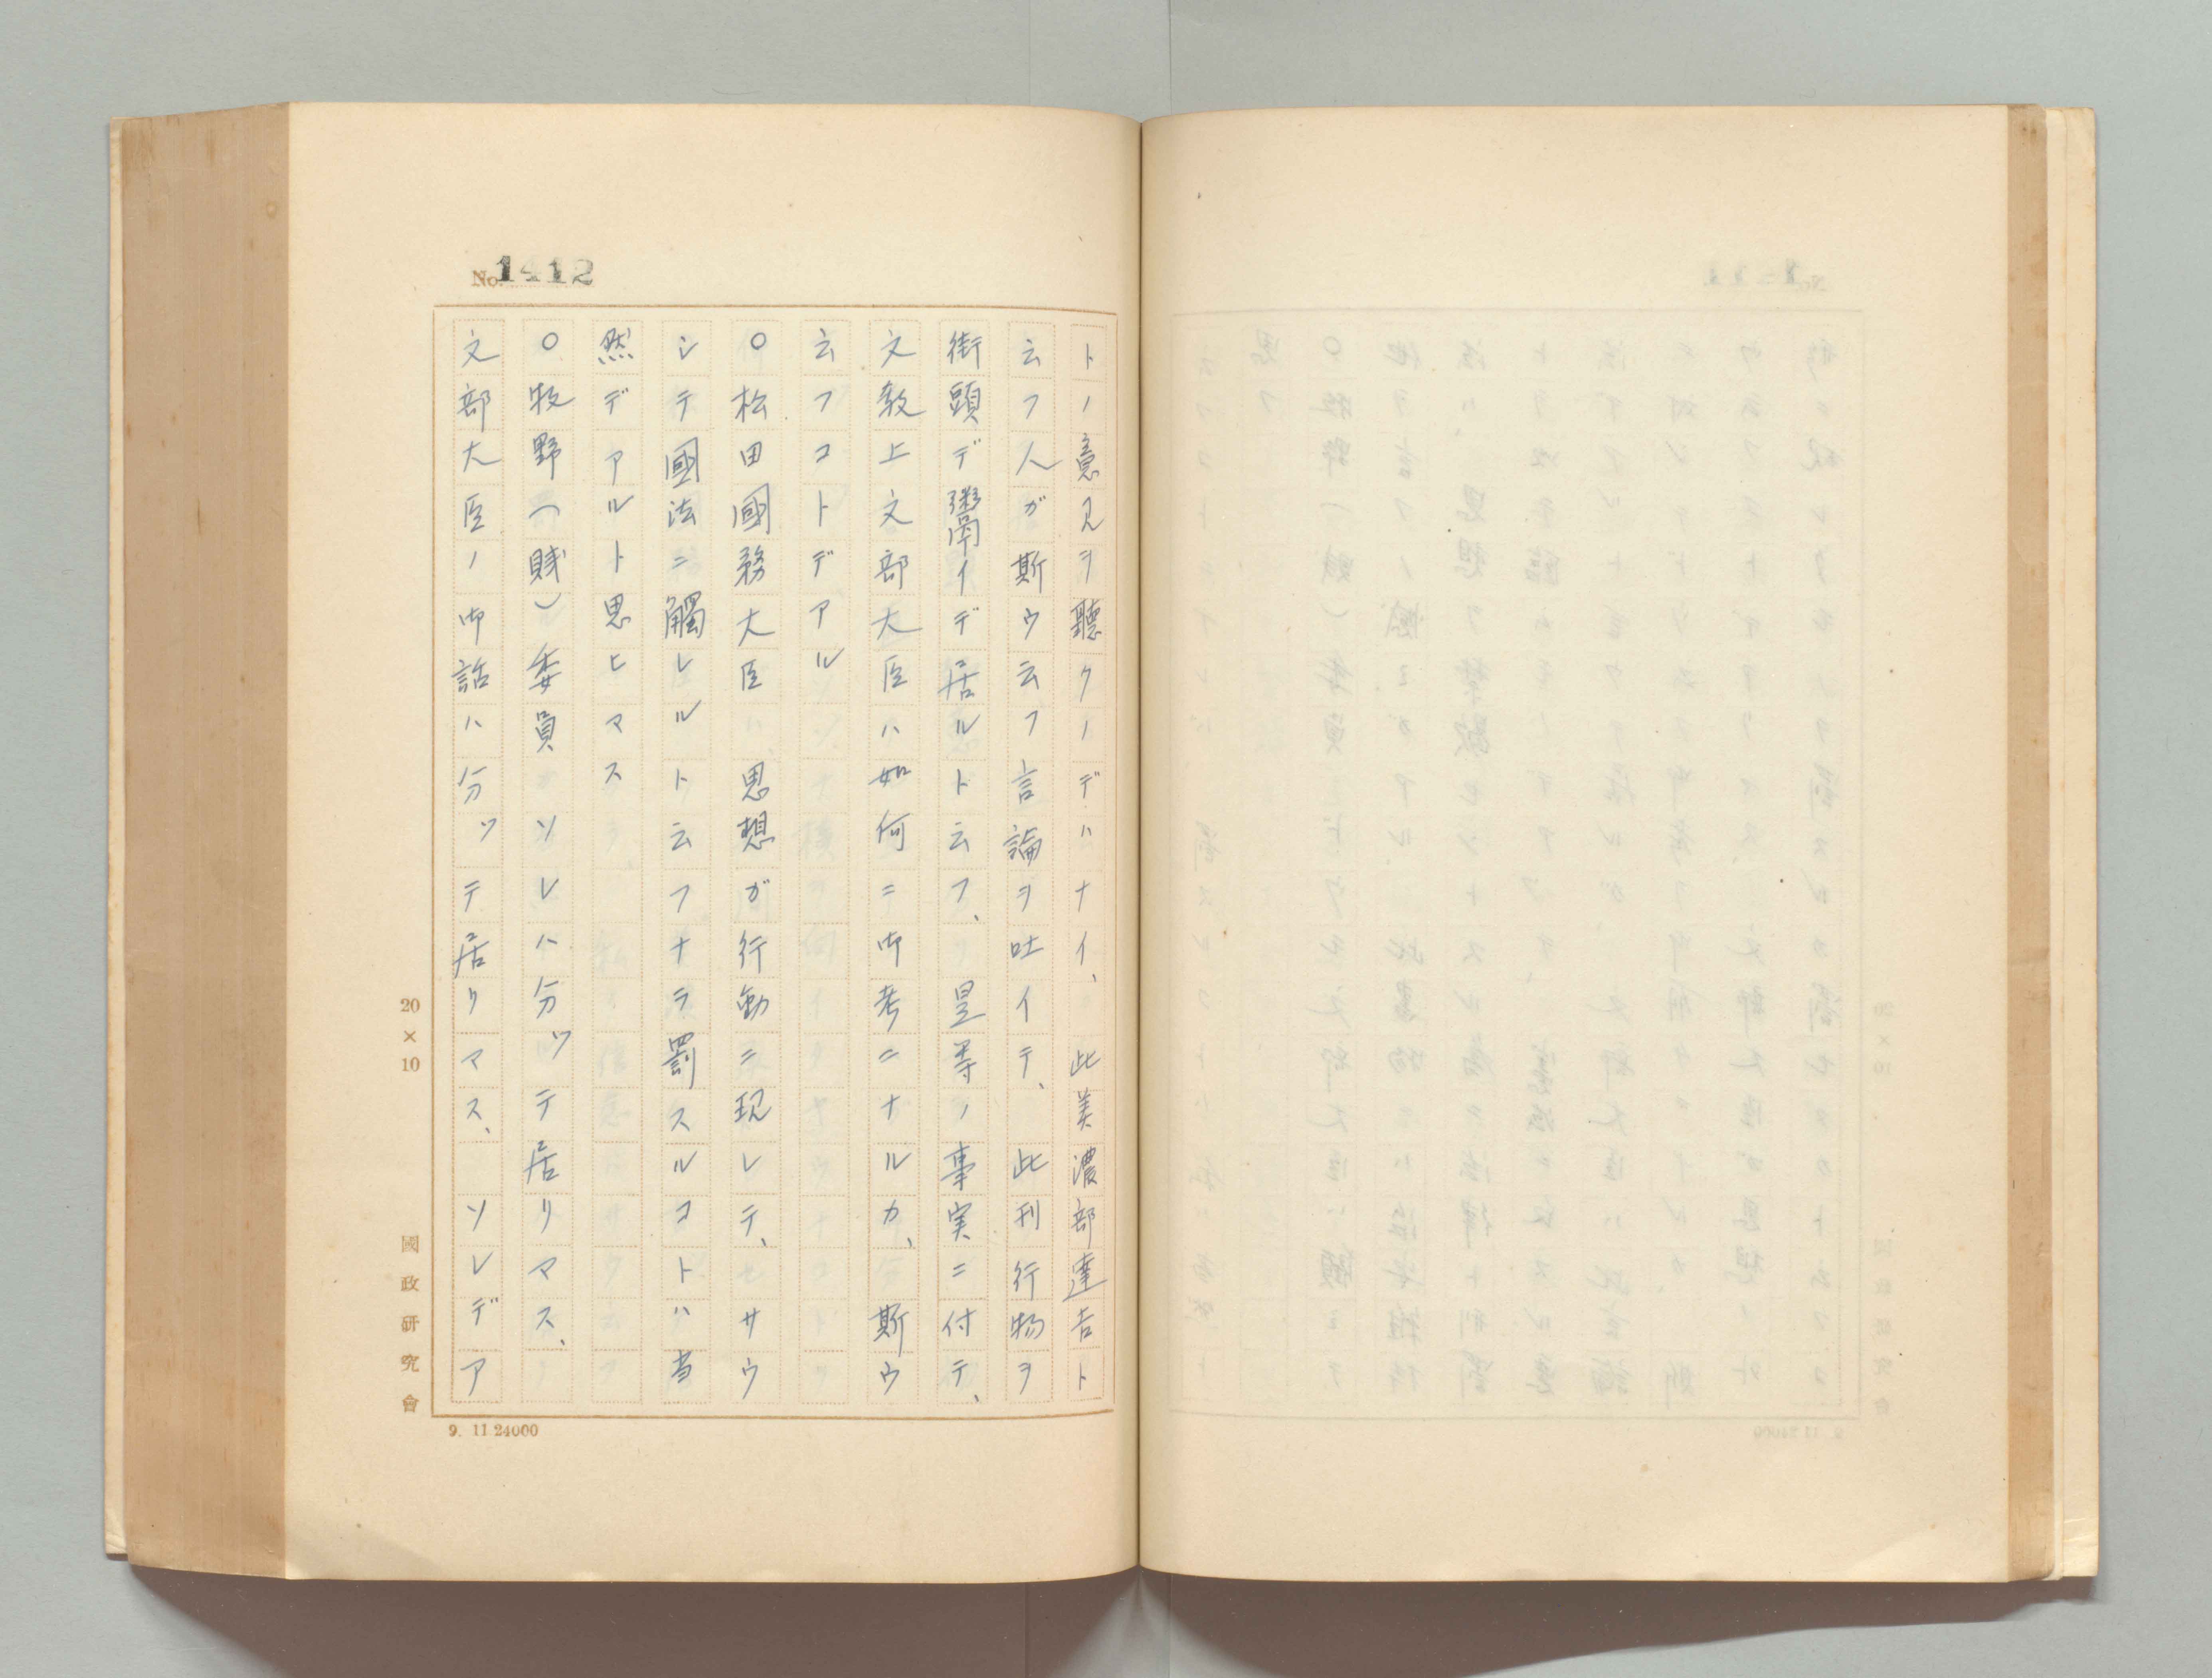 No. 1412
トノ意見ヲ聽クノデハナイ、此美濃部達吉ト
云フ人ガ斯ウ云フ言論ヲ吐イテ、此刊行物ヲ
街頭デ鬻イデ居ルト云フ、是等ノ事実ニ付テ、
文教上文部大臣ハ如何ニ御考ニナルカ、斯ウ
云フコトデアル
○松田國務大臣　思想ガ行動ニ現レテ、サウ
シテ國法ニ觸レルト云フナラ罰スルコトハ当
然デアルト思ヒマス
○牧野(賎)委員　ソレハ分ツテ居リマス、
文部大臣ノ御話ハ分ツテ居リマス、ソレデア
20×10
國政研究會
9. 11 24000